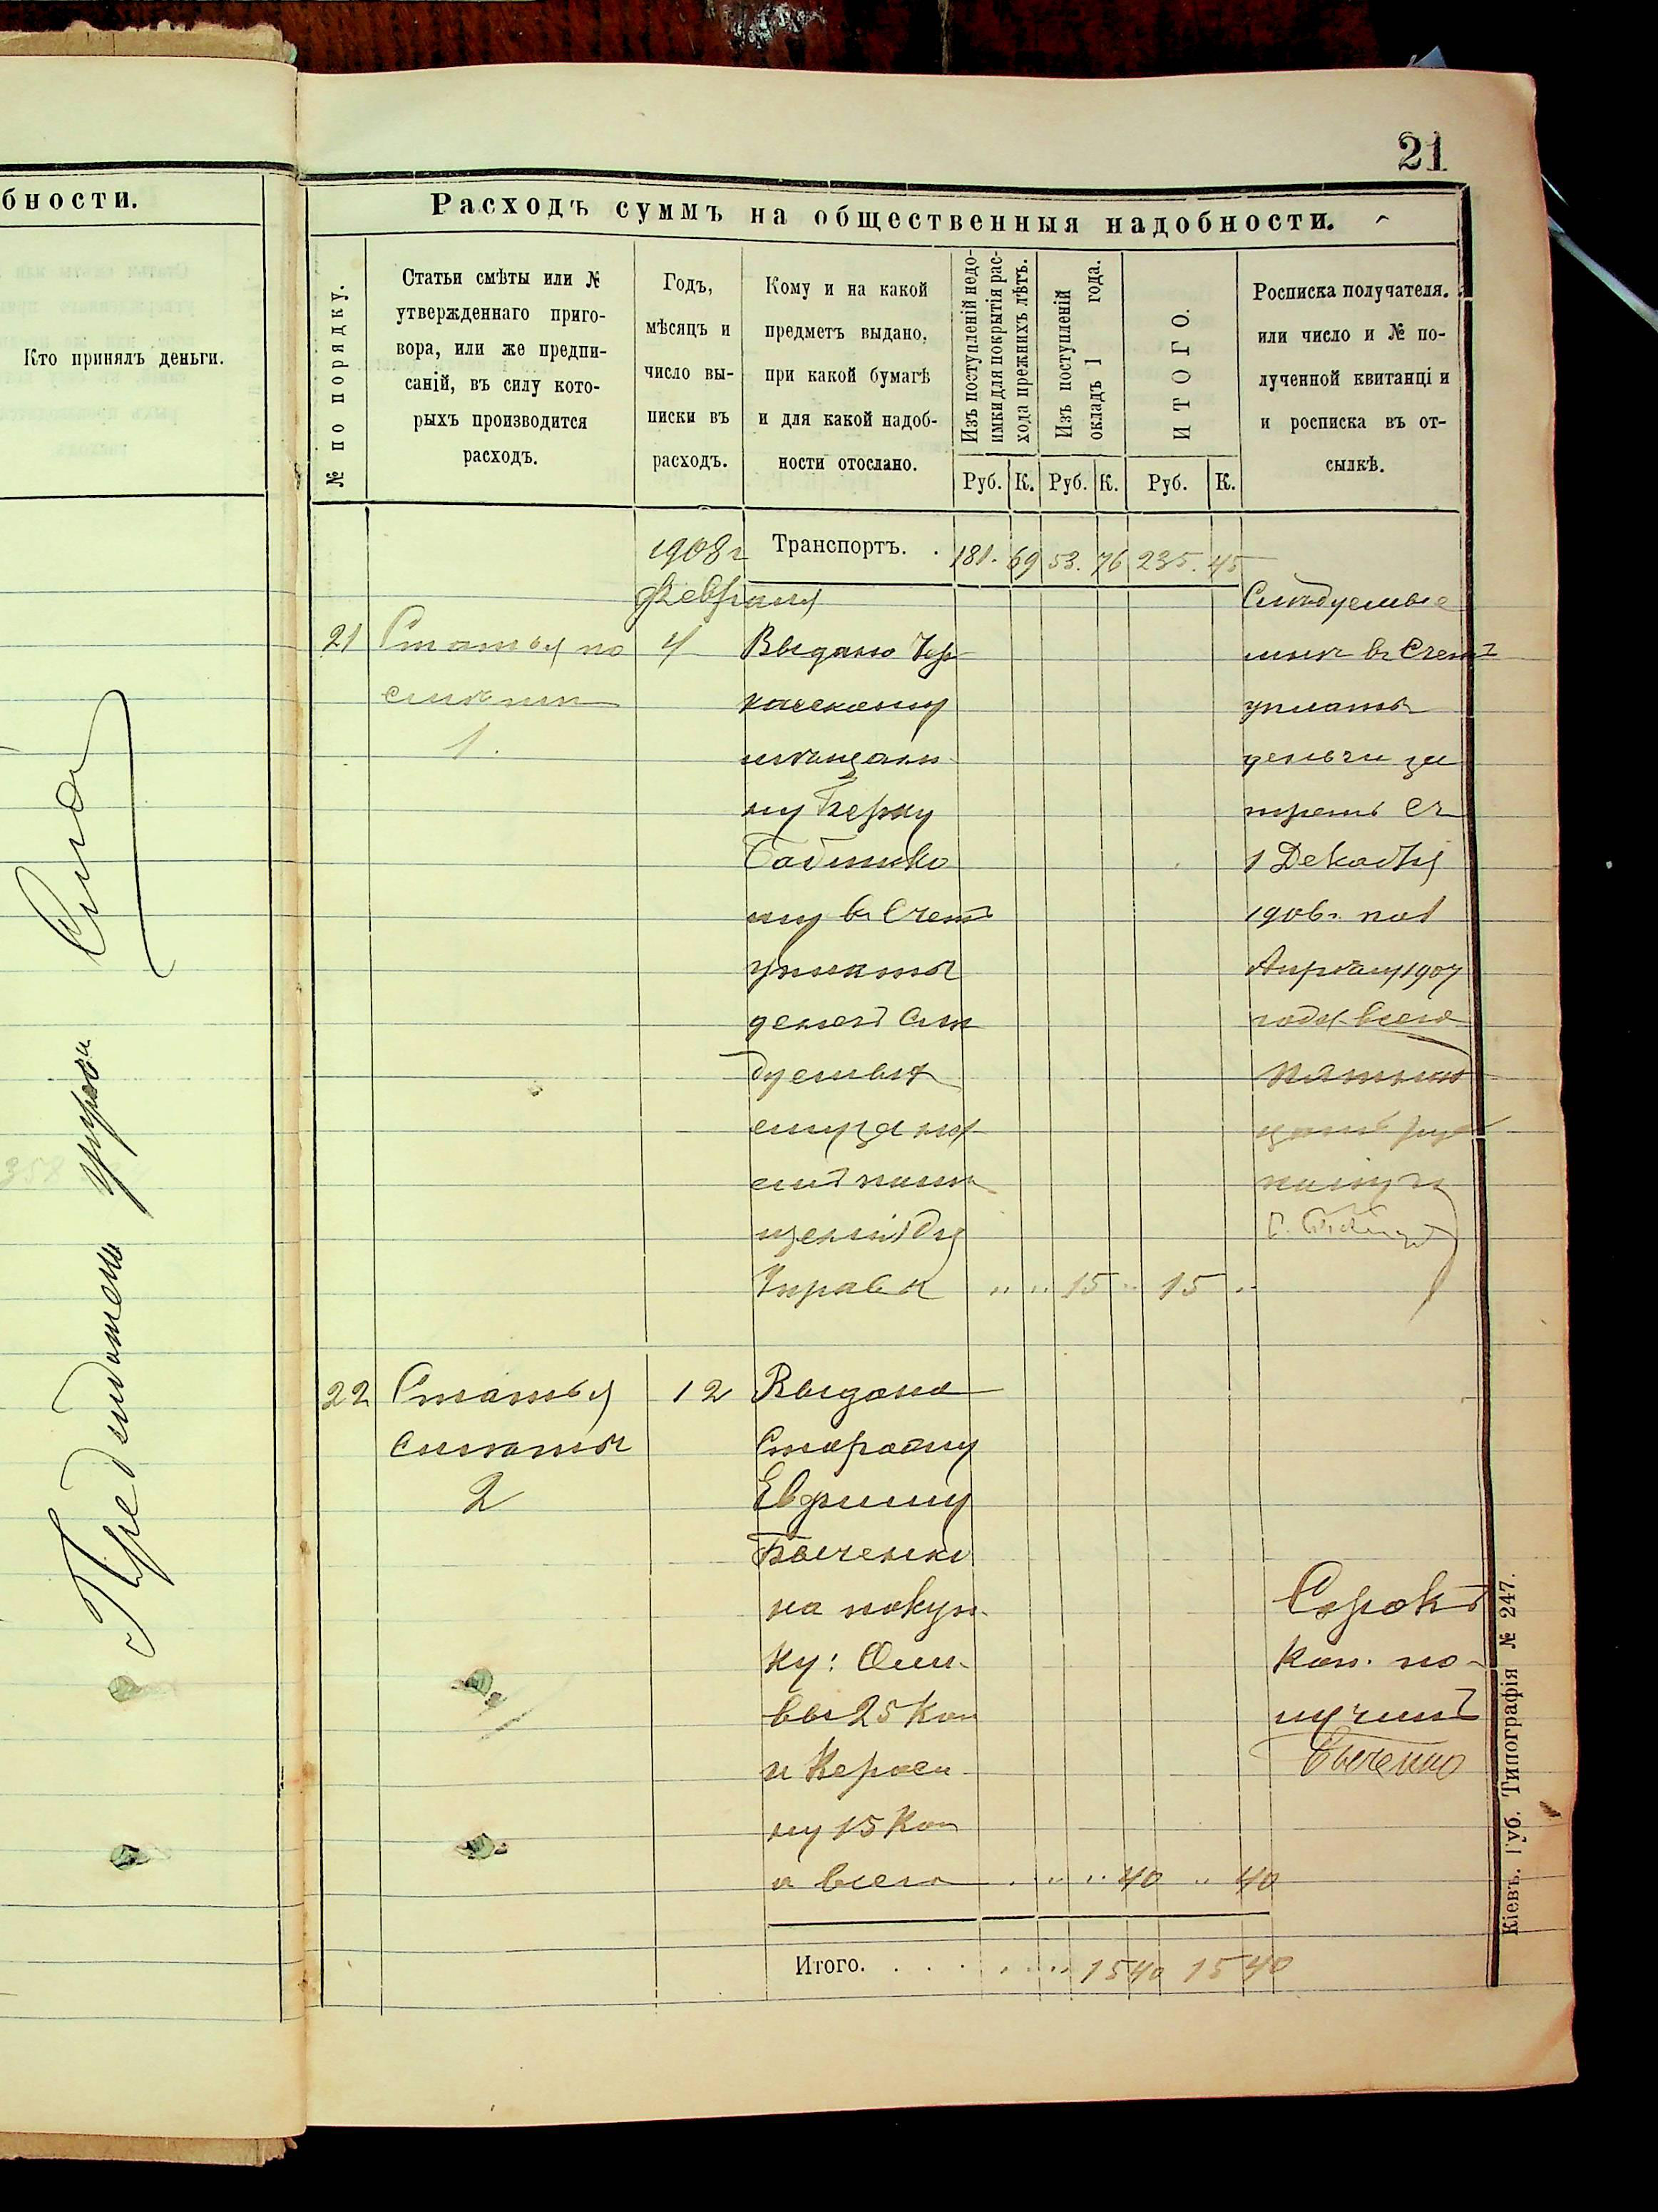 бности.
Кто принялъ деньги.
Предидатель управы
21
Расходъ суммъ на общественныя надобности.
№ по порядку.
Статьи смѣты или №
утвержденнаго приго-
вора, или же предпи-
саній, въ силу кото-
рыхъ производится
расходъ.
Годъ,
мѣсяцъ и
число вы-
писки въ
расходъ.
Кому и на какой
предметъ выдано,
при какой бумагѣ
и для какой надоб-
ности отослано.
Изъ поступленій недо-
имки для покрытія рас-
хода прежнихъ лѣтъ.
Изъ поступленій
окладъ 1 года.
ИТОГО.
Росписка получателя.
или число и № по-
лученной квитанціи
и росписка въ от-
сылкѣ.
Руб. К. Руб. К. Руб. К.
1908 г Транспортъ. . 181. 69 53. 76 235. 45
Февраля
21 Статья по 4 Выдано Чер-
смѣты
1.
касскому
мѣщани-
ну Берку
му въ счетъ
уплаты
денегъ слѣ
дуемыхъ
ему за на
емъ помѣ
щенія для
Управы " " 15 " 15 "
Слѣдуемые
мнѣ въ счетъ
уплаты
деньги за
время съ
1 Декабря
1906 г. по 1
Апрѣля 1907
года всего
пятнад
цать руб
получ
22 Статья 12 Выдано
смѣты
2
Сторожу
Ефиму
Быченко
на покуп-
ку: Оли-
вы 25 коп
и Кероси-
ну 15 коп
а всего " " " 40 " 40
Сорокъ
коп. по-
лучилъ
Быченко
Итого. . . . . . . 15 40 15 40
Кіевъ. Губ. Типографія № 247.